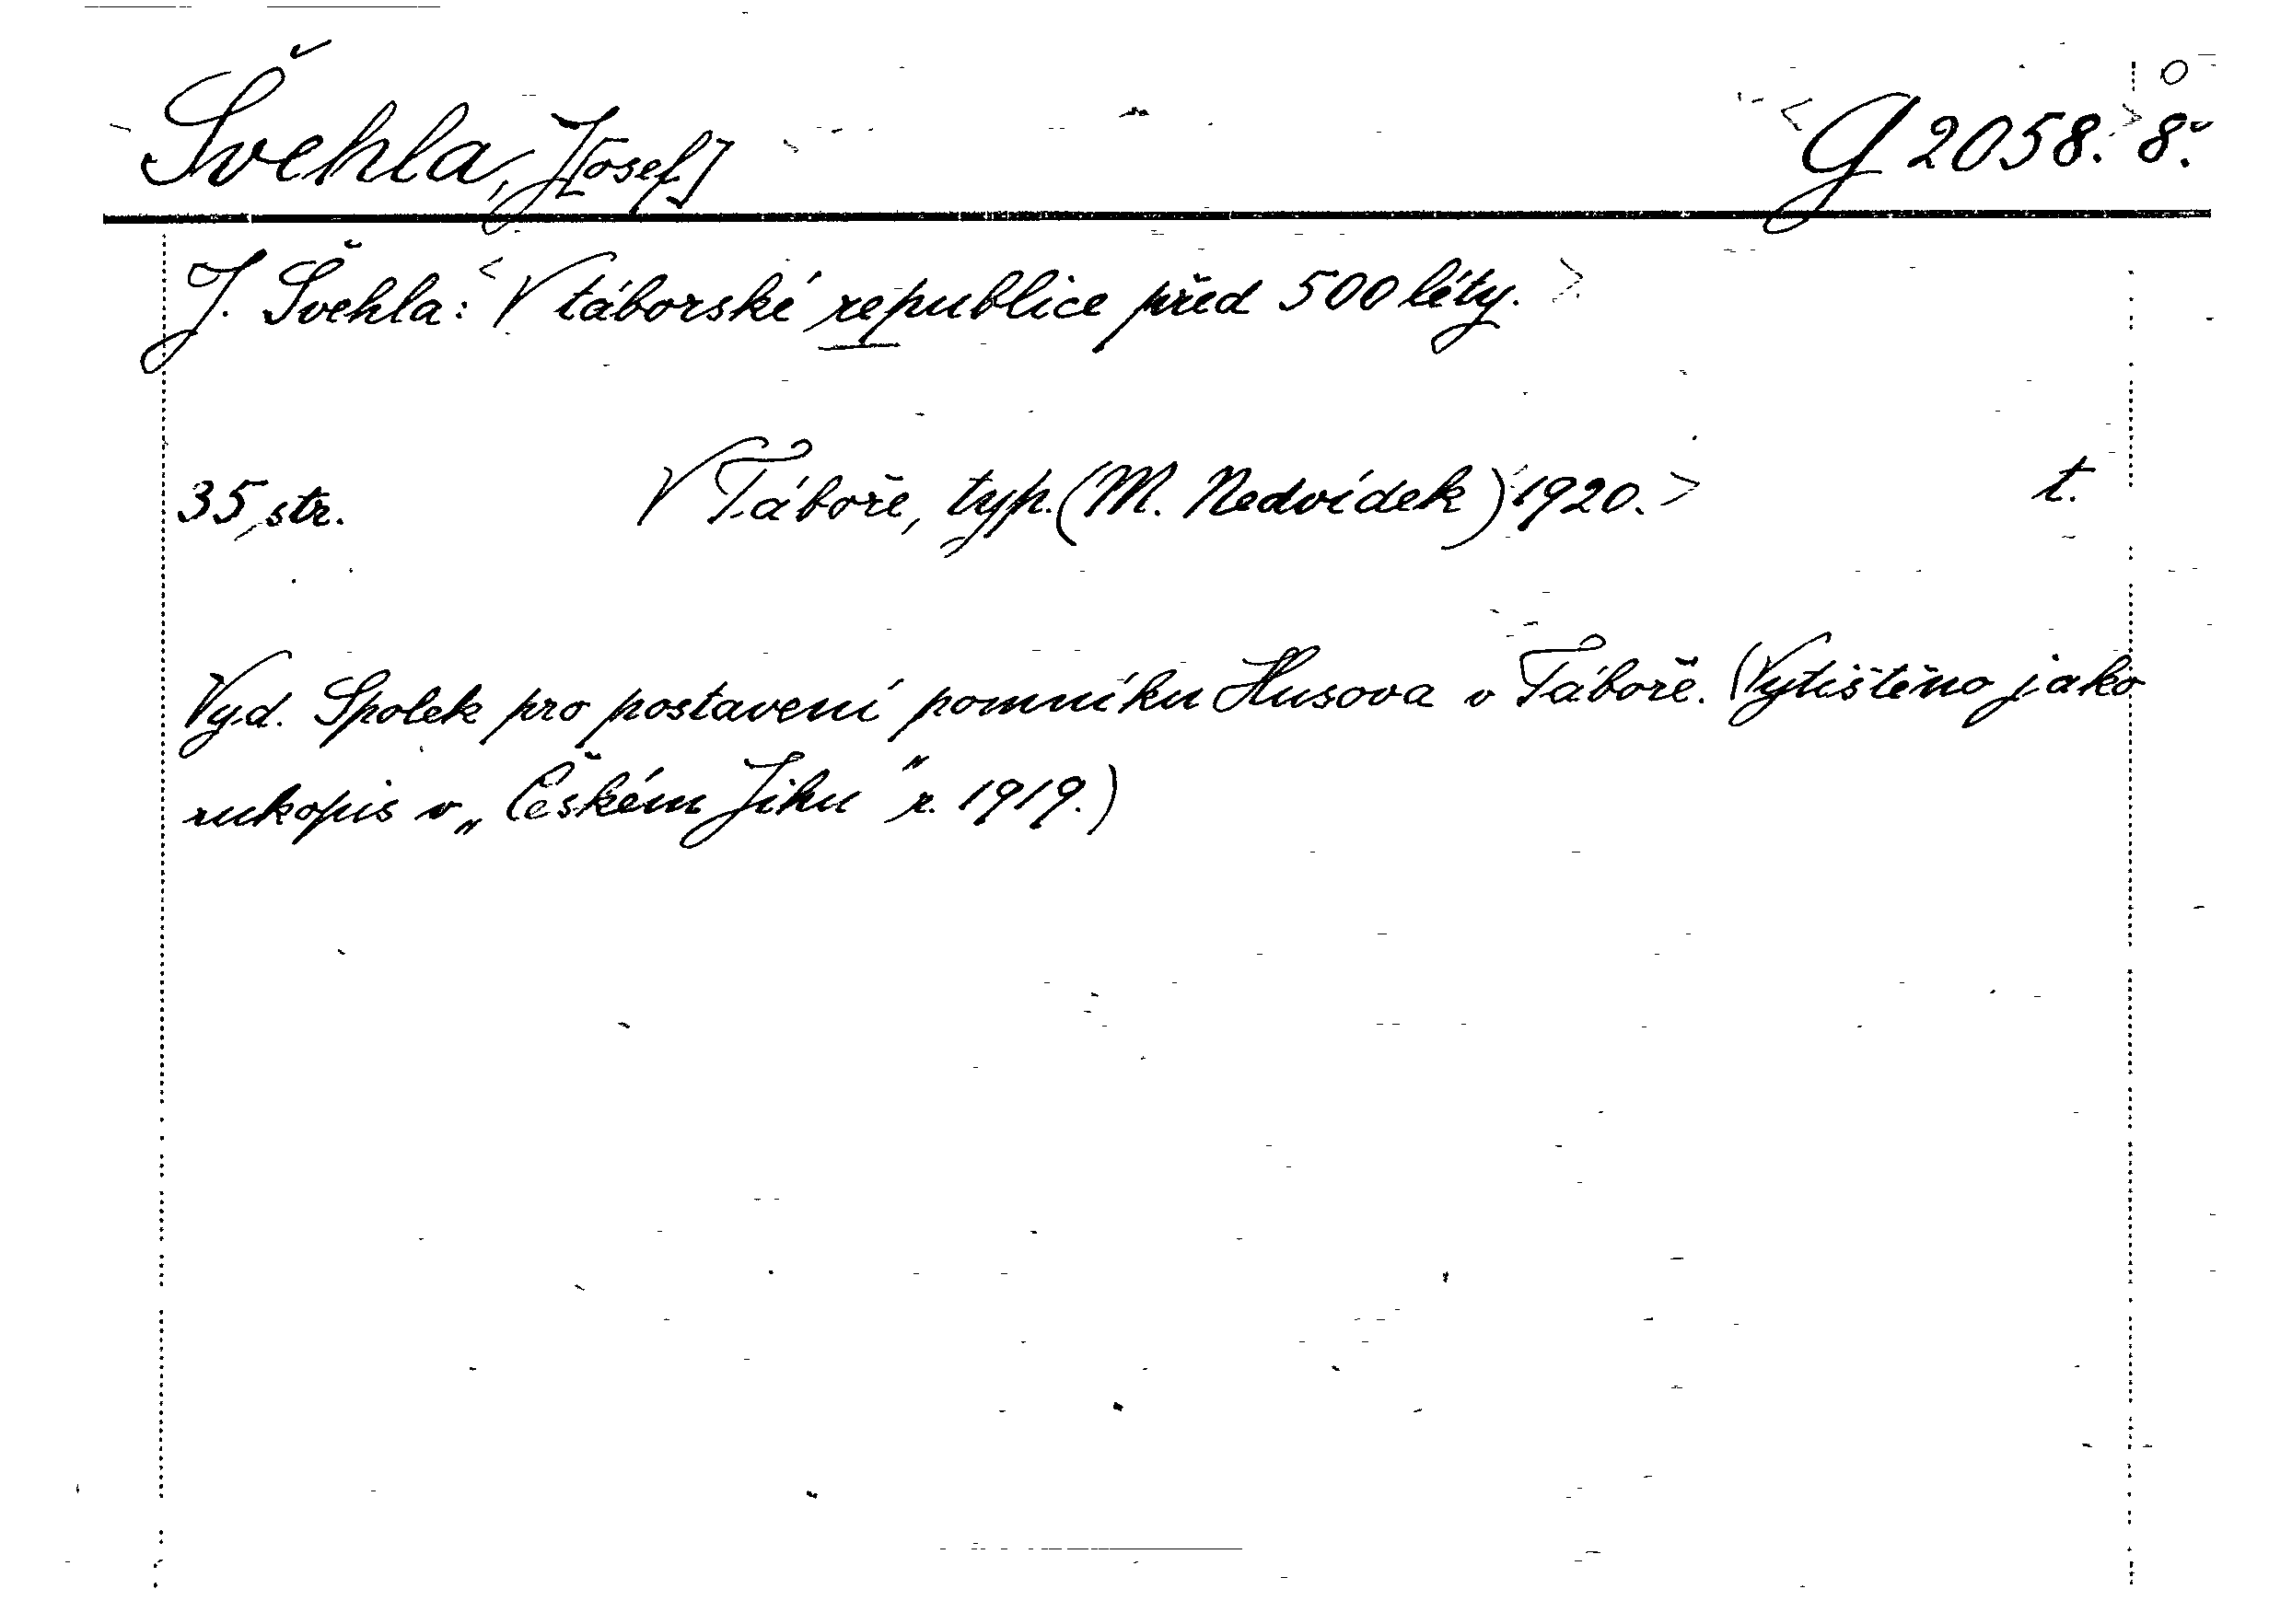 Švehla, J[osef] <G 2058.> 8°.
J. Švehla: <V táborské republice před 500 léty.>
35, str. V Táboře, typ. (M. Nedvídek) <1920.> t.
Vyd. Spolek pro postavení pomníku Husova v Táboře. (Vytištěno jako
rukopis v „Českém Jihu" r. 1919.)